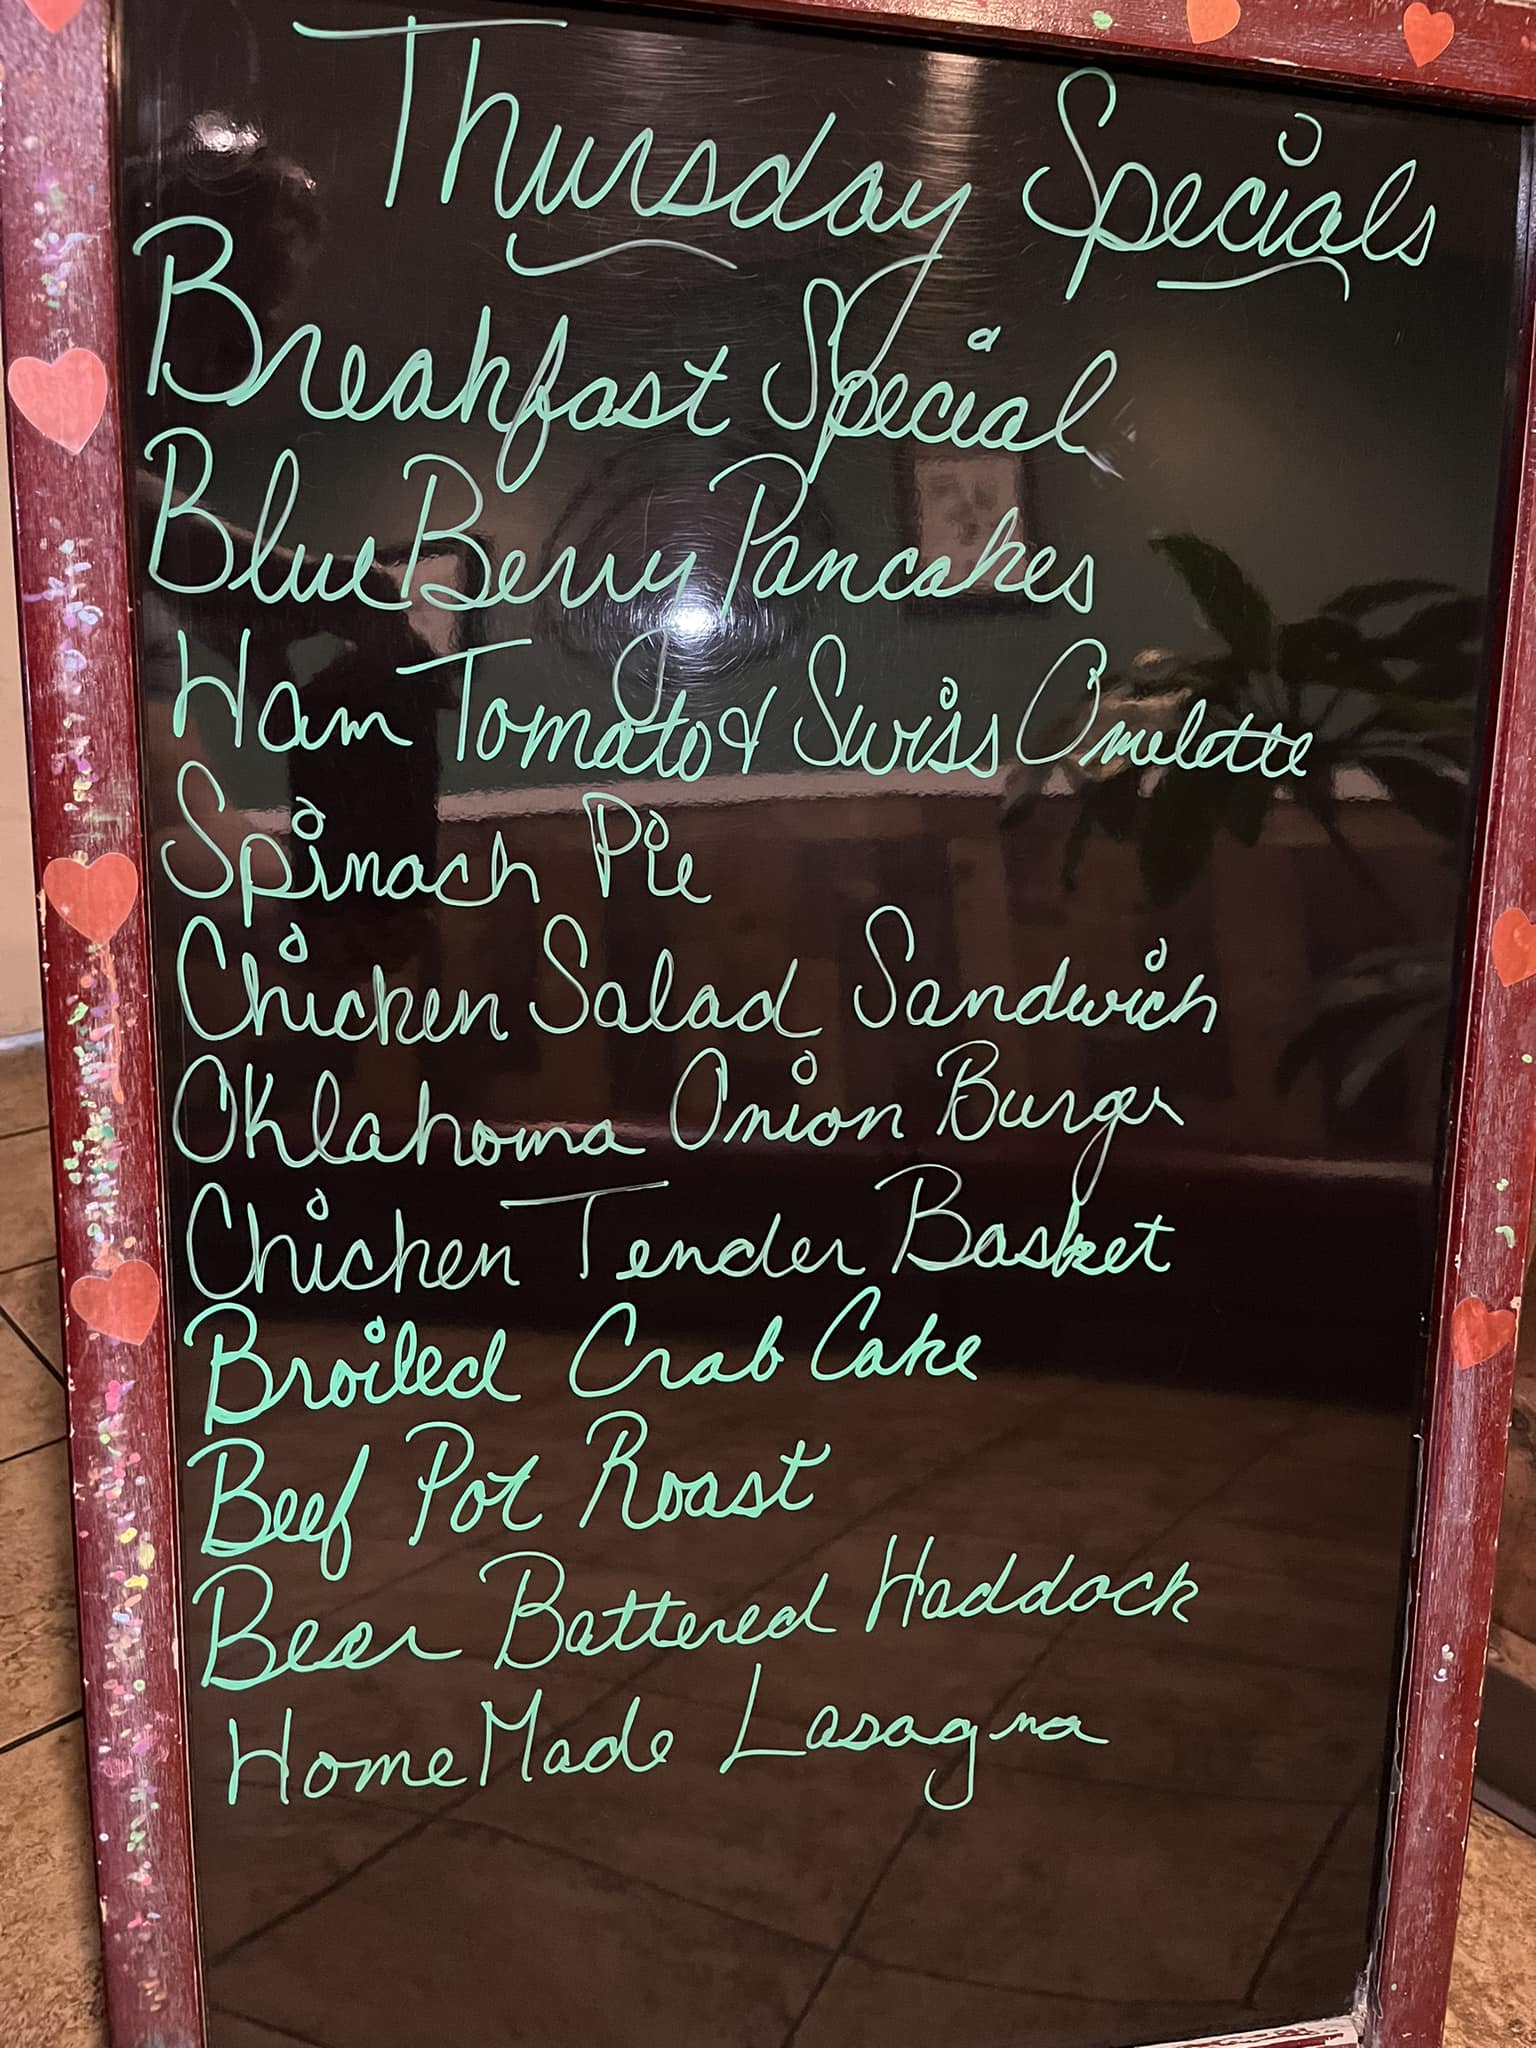 Thursday Specials
Breakfast Special
BlueBerry Pancakes
Ham Tomato & Swiss Omelette
Spinach Pie
Chicken Salad Sandwich
Oklahoma Onion Burger
Chicken Tender Basket
Broiled Crab Cake
Beef Pot Roast
Beer Battered Haddock
HomeMade Lasagna